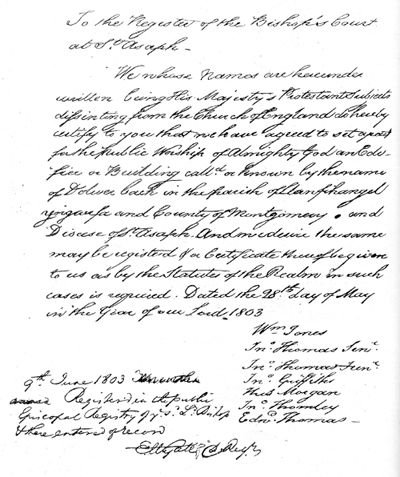 To the Register of the Bishop's Court
at St. Asaph -
We whose Names are hereunder
written being His Majesty's Protestant Subjects
dissenting from the Church of England do hereby
certify to you that we have agreed to set apart
for the Public Worship of Almighty God an Edi-
fice or Building call'd or known by the name
of Dolwar bach in the parish of Llanfihangel
yngwnfa and County of Montgomery and
Diocese of St. Asaph. And we desire the same
may be registered & a Certificate thereof be given
to us as by the Statutes of the Realm in such
cases is required. Dated the 28th Day of May
in the Year of our Lord 1803
Wm Jones
Jno Thomas Senr
Jno Thomas Junr
Jno Griffiths
Thos Morgan
Jno Thomley
Edwd Thomas
9th June 1803
Registered in the public
Episcopal Registry of Bishop
& there entered of record